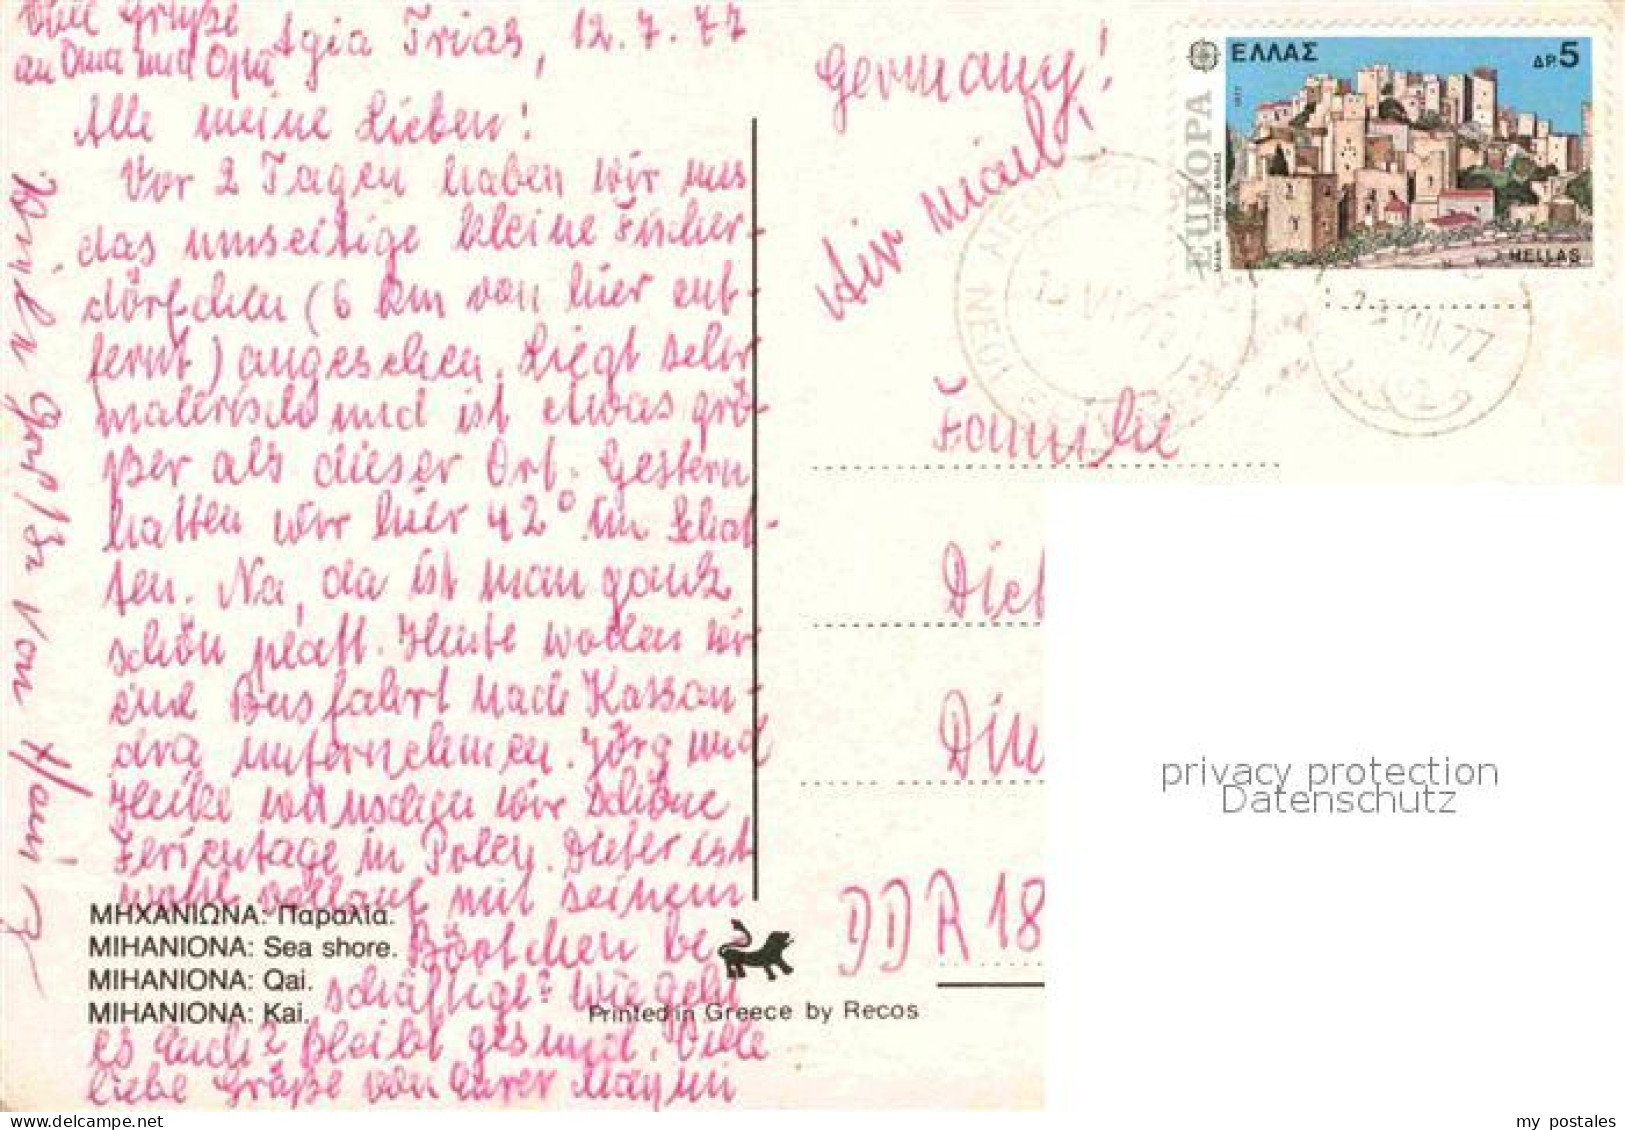 Viele Grüße
an Oma und Opa
Agia Trias, 12.7.77
Alle meine Lieben!
Vor 2 Tagen haben wir uns
das umseitige kleine Fischer-
dörfchen (6 km von hier ent-
fernt) angesehen. Liegt sehr
malerisch und ist etwas grö-
ßer als dieser Ort. Gestern
hatten wir hier 42° im Schat-
ten. Na, da ist man ganz
schön platt. Heute wollen wir
eine Busfahrt nach Kassan-
dra unternehmen. Jörg und
Heike wünschen wir schöne
Ferientage in Polen. Dieter ist
wohl vollauf mit seinem
Böötchen be
schäftigt? Wie geht
es Euch? Bleibt gesund. Viele
liebe Grüße von Eurer
von
ΜΗΧΑΝΙΩΝΑ: Παραλία.
MIHANIONA: Sea shore.
MIHANIONA: Qai.
MIHANIONA: Kai.
Printed in Greece by Recos
Germany!
Air Mail!
ΕΛΛΑΣ
ΔΡ. 5
EUROPA
1977
HELLAS
VII 77
Familie
Diet
Din
DDR 18
privacy protection
Datenschutz
my postales